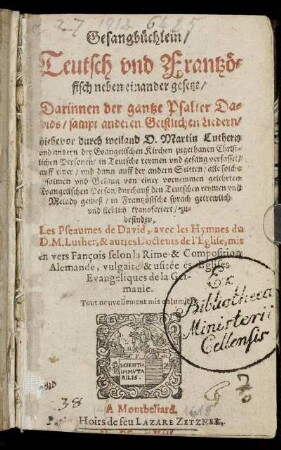 Gesangbüchlein/
Teutsch vnd Frantzö-
sisch neben einander gesetzt/
Darinnen der gantze Psalter Da-
vids/ sampt anderen Geistlichen Liedern/
hiebevor durch weiland D. Martin Luthern
vnd andern der Evangelischen Kirchen zugethanen Christ-
lichen Personen/ in Teutsche reymen vnd gesang verfasset/
auff einer/ vnd dann auff der andern Seitten/ alle solche
Psalmen vnd Gesäng von einer vornemmen gelehrten
Evangelischen Person durchauß den Teutschen reymen vnd
Melody gemeß/ in Frantzösische sprach getrewlich
vnd lieblich transferiert/ zu-
befinden.
Les Pseaumes de David, avec les Hymnes du
D. M. Luther, & autres Docteurs de l'Eglise, mis
en vers François selon la Rime & Composition
Alemande, vulgaire & usitée és Eglises
Evangeliques de la Ger-
manie.
Tout nouvellement mis en lumiere
SCIENTIA
IMMUTA
BILIS.
Ex
Bibliotheca
Ministerii
Cellensis
38
A Montbeliard.
Hoirs de feu LAZARE ZETZNER.